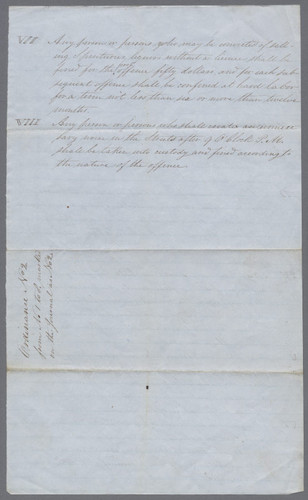 VII Any person or persons, who may be convicted of sell-
ing spirituous liquor without a license shall be
fined for the 1st offense fifty dollars and for each sub-
sequent offense shall be confined at hard labor
for a term not less than six or more than twelve
months
VIII Any person or persons who shall create an unneces-
sary noise in the Streets after 9 O'clock P.M.
shall be taken into custody and fined according to
the nature of the offense
Ordinance No 2
from No 1 to 8
in the Journal as No 2